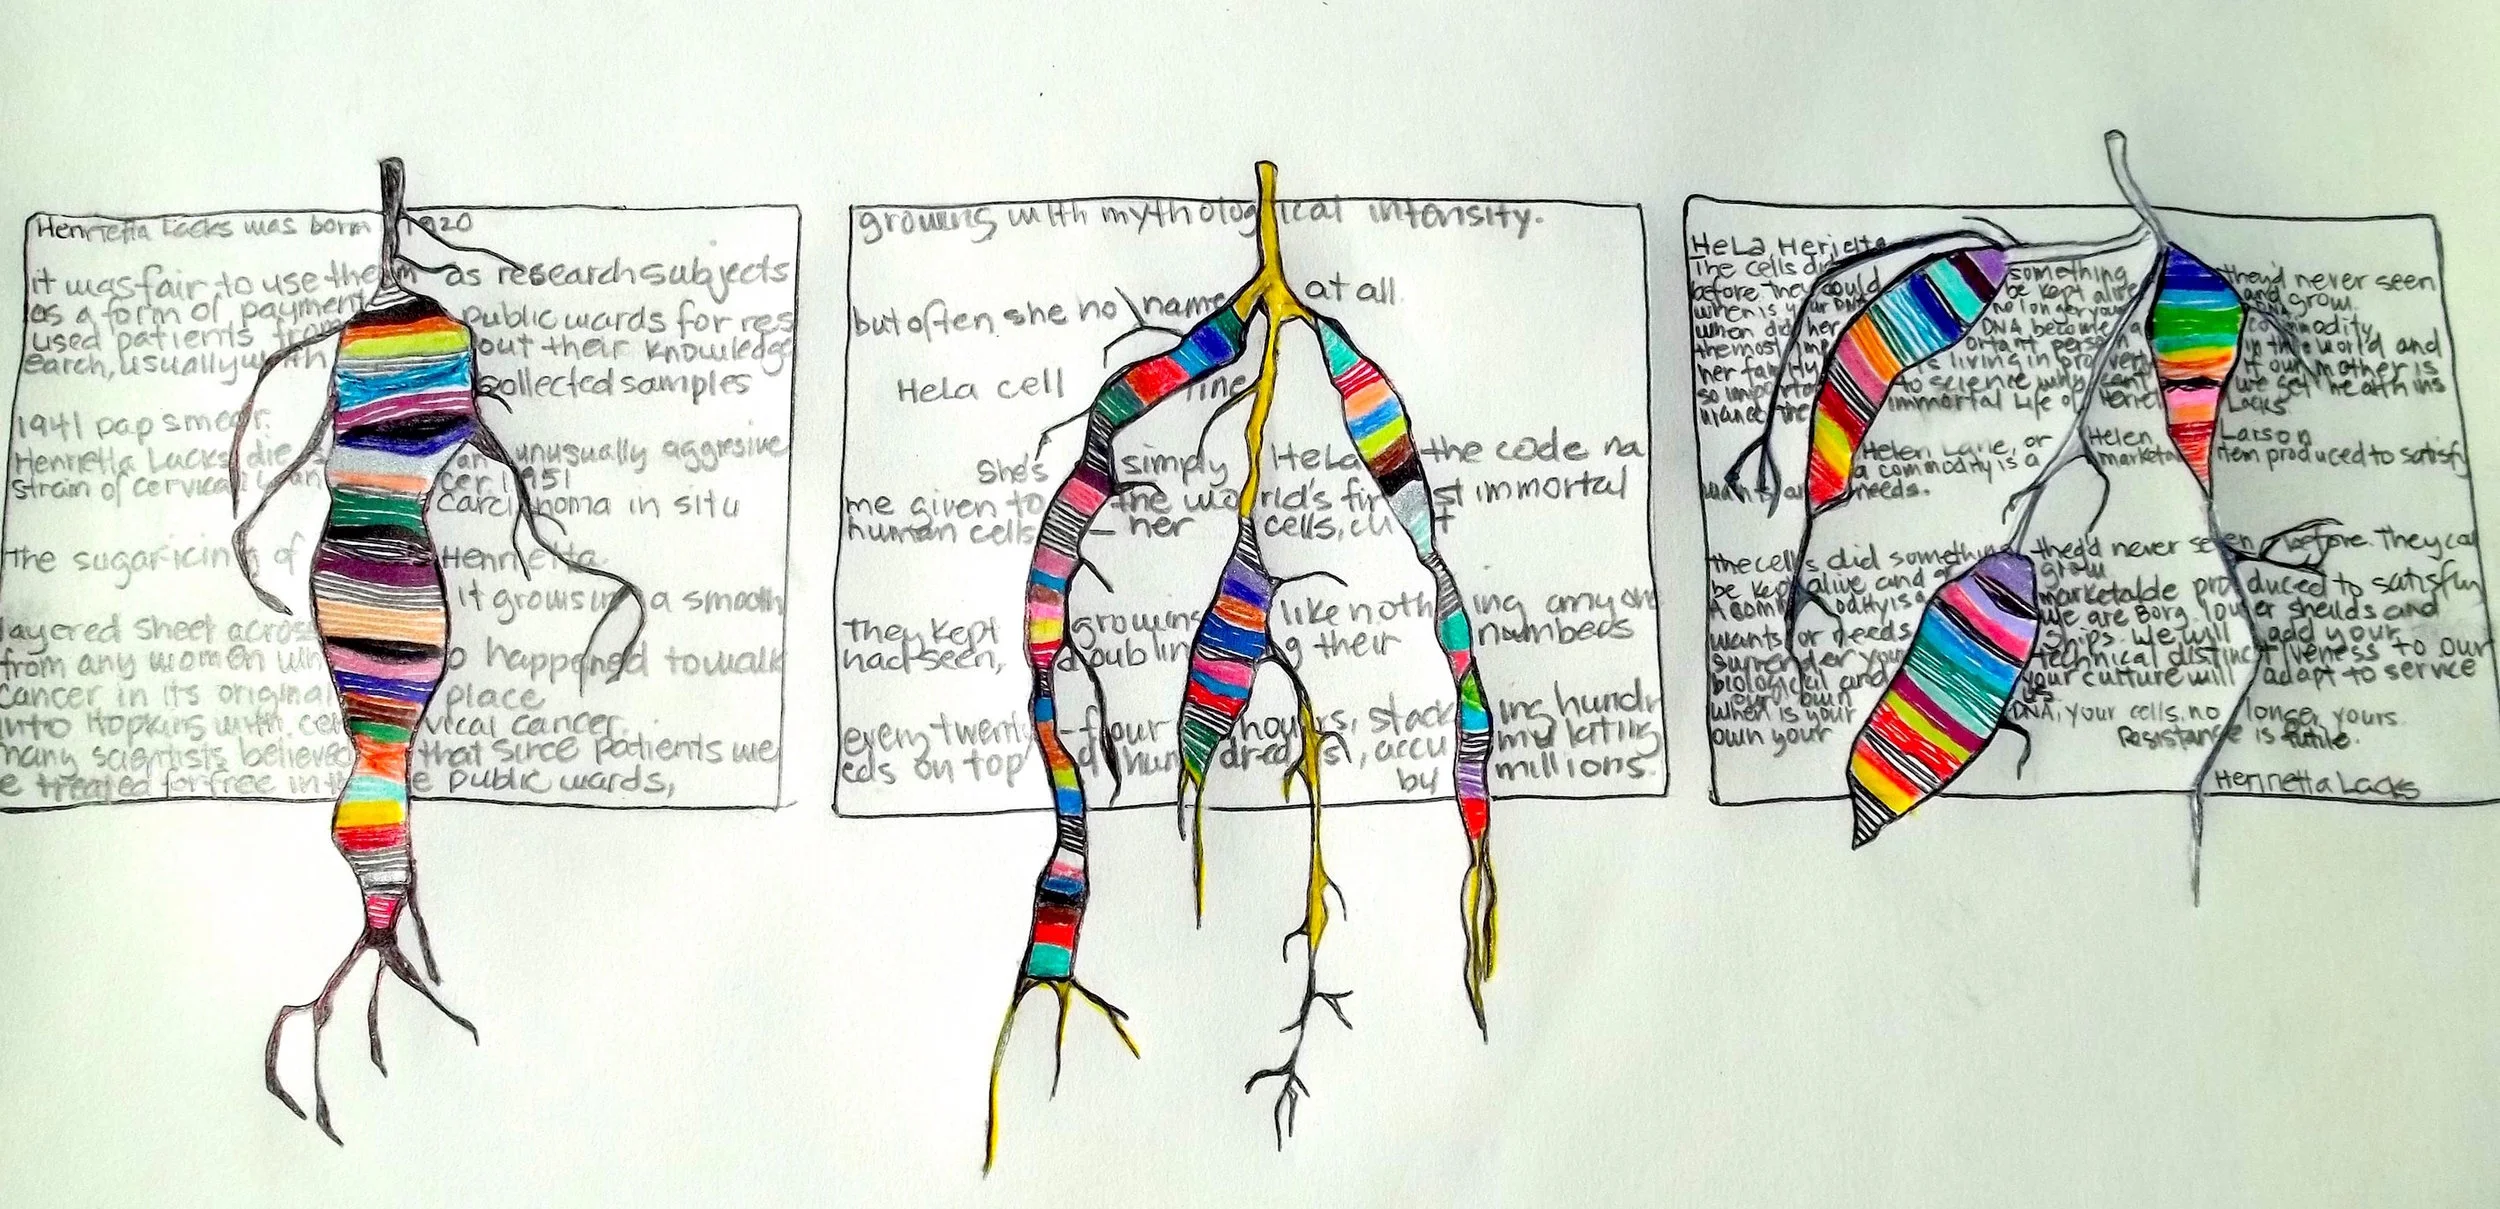 Henrietta Lacks was born 1920
it was fair to use them as research subjects
as a form of payment public wards for res
used patients from out their knowledge
earch, usually with collected samples
1941 pap smear.
Henrietta Lacks die an unusually aggresive
strain of cervical can cer 1951
Carcinoma in situ
The sugar icing of Henrietta.
it grows in a smooth
layered sheet across
from any women wh o happened to walk
cancer in its original place
into Hopkins with cer vical cancer.
many scientists believed that since patients we
e treated for free in the public wards,
growing with mythological intensity.
but often she no name at all
HeLa cell line
She's simply HeLa the code na
me given to the world's first immortal
human cells – her cells, cu t
They kept growing like noth ing anyone
had seen, doubling their numbers
every twenty-four hours, stack ing hundr
eds on top of hundreds, accu mulating
by millions.
HeLa Herietta
The cells di something they'd never seen
before they could be kept alive and grow.
when is your DNA no longer your DNA,
when did her DNA become a commodity
the most important person in the world and
her family is living in proverty if our mother is
so important to science why cant we get health ins
urance the immortal Life of Henriet Lacks
Helen Lane, or Helen Larson
a commodity is a marketa item produced to satisfy
wants or needs.
The cells did something they'd never seen before. They cou
be kept alive and grow
A commodity is a marketable produced to satisfy
wants or needs We are Borg. lower sheilds and
surrender your ships. We will add your
biological and technical distinctiveness to our
own your culture will adapt to service
us
When is your DNA, your cells, no longer yours
own your Resistance is futile.
Henrietta Lacks